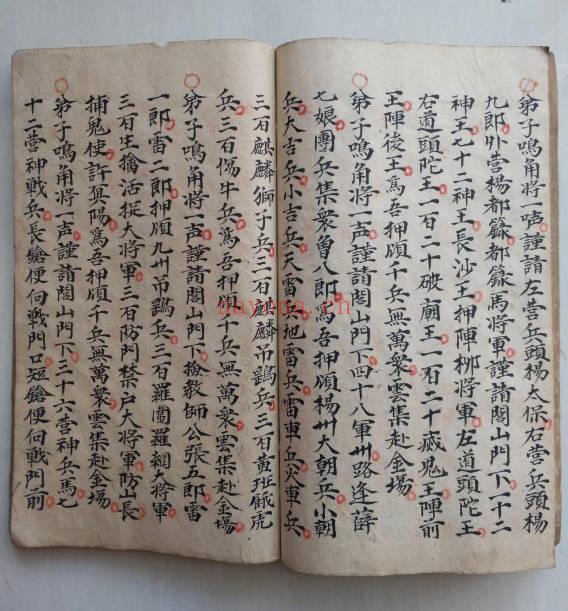 弟子鳴角將一声謹請左营兵頭楊太保右营兵頭楊
九郎外营楊都籙都籙馬將軍謹請閭山門下一十二
神王七十二神王長沙王押陣柳將軍左道頭陀王
右道頭陀王一百二十破廟王一百二十滅鬼王陣前
王陣後王為吾押領千兵無萬衆雲集赴金場
弟子鳴角將一声謹請閭山門下四十八軍州路逢薛
七娘團兵集衆魯八郎為吾押領楊州大朝兵小朝
兵大吉兵小吉兵天雷兵地雷兵雷車兵火車兵
三百麒麟獅子兵三百麒麟吊鵶兵三百黄班餓虎
兵三百惕牛兵為吾押領十兵無萬衆雲集赴金場
弟子鳴角將一声謹請閭山門下檢教師公張五郎雷
一郎雷二郎押領九州吊鵶兵三百羅圍羅綱大將軍
三百生擒活捉大將軍三百防門禁戸大將軍防山長
捕鬼使許真陽為吾押領千兵無萬衆雲集赴金場
弟子鳴角將一声謹請閭山門下三十六营神兵馬七
十二营神戰兵長鎗便向戰門口短鎗便向戰門前